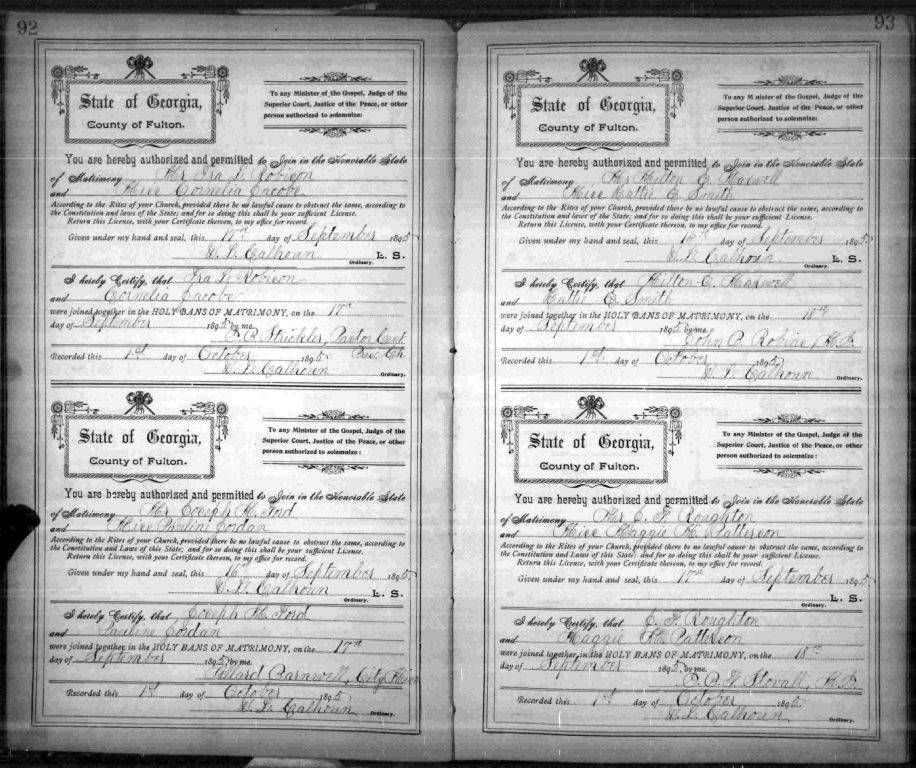 92
State of Georgia,
County of Fulton.
To any Minister of the Gospel, Judge of the
Superior Court, Justice of the Peace, or other
person authorized to solemnize:
You are hereby authorized and permitted to Join in the Honorable State
of Matrimony Mr Ira L. Robison
and Miss Cornelia Jacobs
According to the Rites of your Church, provided there be no lawful cause to obstruct the same, according to
the Constitution and laws of the State; and for so doing this shall be your sufficient License.
Return this License, with your Certificate thereon, to my office for record.
Given under my hand and seal, this 17th day of September 1895
W. L. Calhoun L. S.
Ordinary.
I hereby Certify, that Ira L. Robison
and Cornelia Jacobs
were joined together in the HOLY BANS OF MATRIMONY, on the 17th
day of September 1895 by me.
Strickler, Pastor Cent.
Pres. Ch.
Recorded this 1st day of October 1895
W. L. Calhoun
Ordinary.
State of Georgia,
County of Fulton.
To any Minister of the Gospel, Judge of the
Superior Court, Justice of the Peace, or other
person authorized to solemnize:
You are hereby authorized and permitted to Join in the Honorable State
of Matrimony Mr Joseph H. Ford
and Miss Pauline Jordan
According to the Rites of your Church, provided there be no lawful cause to obstruct the same, according to
the Constitution and Laws of this State; and for so doing this shall be your sufficient License.
Return this License, with your Certificate thereon, to my office for record.
Given under my hand and seal, this 16 day of September 1895
W. L. Calhoun L. S.
Ordinary.
I hereby Certify, that Joseph H. Ford
and Pauline Jordan
were joined together in the HOLY BANS OF MATRIMONY, on the 17th
day of September 1895 by me.
Barnwell, City Miss
Recorded this 1st day of October 1895
W. L. Calhoun
Ordinary.
93
State of Georgia,
County of Fulton.
To any Minister of the Gospel, Judge of the
Superior Court, Justice of the Peace, or other
person authorized to solemnize:
You are hereby authorized and permitted to Join in the Honorable State
of Matrimony Mr Milton E. Maxwell
and Miss Mattie E. Smith
According to the Rites of your Church, provided there be no lawful cause to obstruct the same, according to
the Constitution and laws of the State; and for so doing this shall be your sufficient License.
Return this License, with your Certificate thereon, to my office for record.
Given under my hand and seal, this day of September 1895
W. L. Calhoun L. S.
Ordinary.
I hereby Certify, that Milton E. Maxwell
and Mattie E. Smith
were joined together in the HOLY BANS OF MATRIMONY, on the 18th
day of September 1895 by me.
John B. Robins, M.G.
Recorded this 1st day of October 1895
W. L. Calhoun
Ordinary.
State of Georgia,
County of Fulton.
To any Minister of the Gospel, Judge of the
Superior Court, Justice of the Peace, or other
person authorized to solemnize:
You are hereby authorized and permitted to Join in the Honorable State
of Matrimony Mr J. F. Roughton
and Miss Maggie M. Patterson
According to the Rites of your Church, provided there be no lawful cause to obstruct the same, according to
the Constitution and Laws of this State; and for so doing this shall be your sufficient License.
Return this License, with your Certificate thereon, to my office for record.
Given under my hand and seal, this 17th day of September 1895
L. S.
Ordinary.
I hereby Certify, that J. F. Roughton
and Maggie M. Patterson
were joined together in the HOLY BANS OF MATRIMONY, on the 18th
day of September 1895 by me.
Stovall, M.G.
Recorded this 1st day of October 1895
W. L. Calhoun
Ordinary.